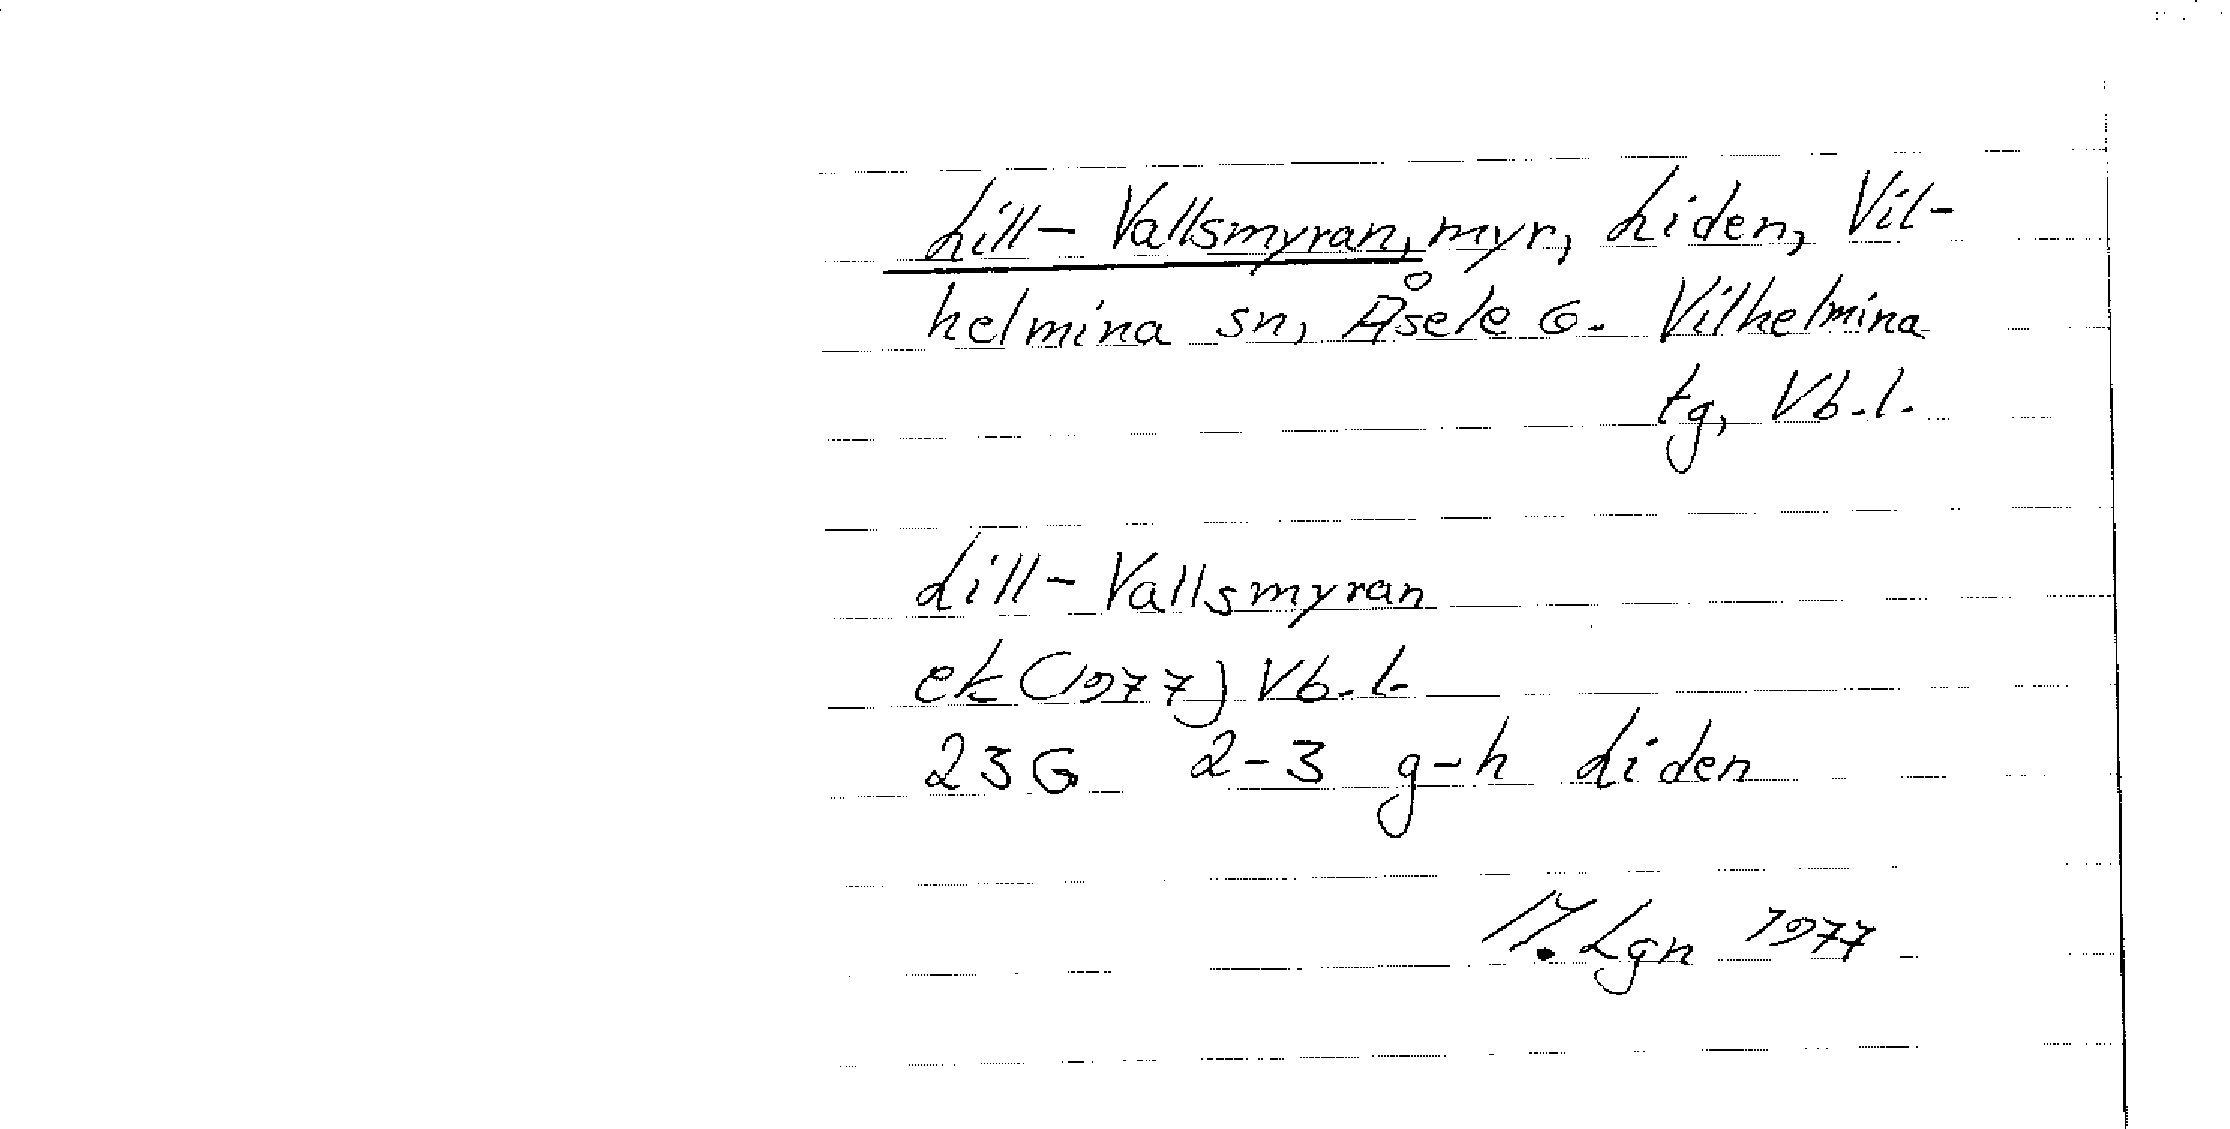 Lill-Vallsmyran, myr, Liden, Vil-
helmina sn, Åsele G. Vilhelmina
tg, Vb.l.
Lill-Vallsmyran
ek (1977) Vb.l.
23G 2-3 g-h Liden
M. Lgn 1977